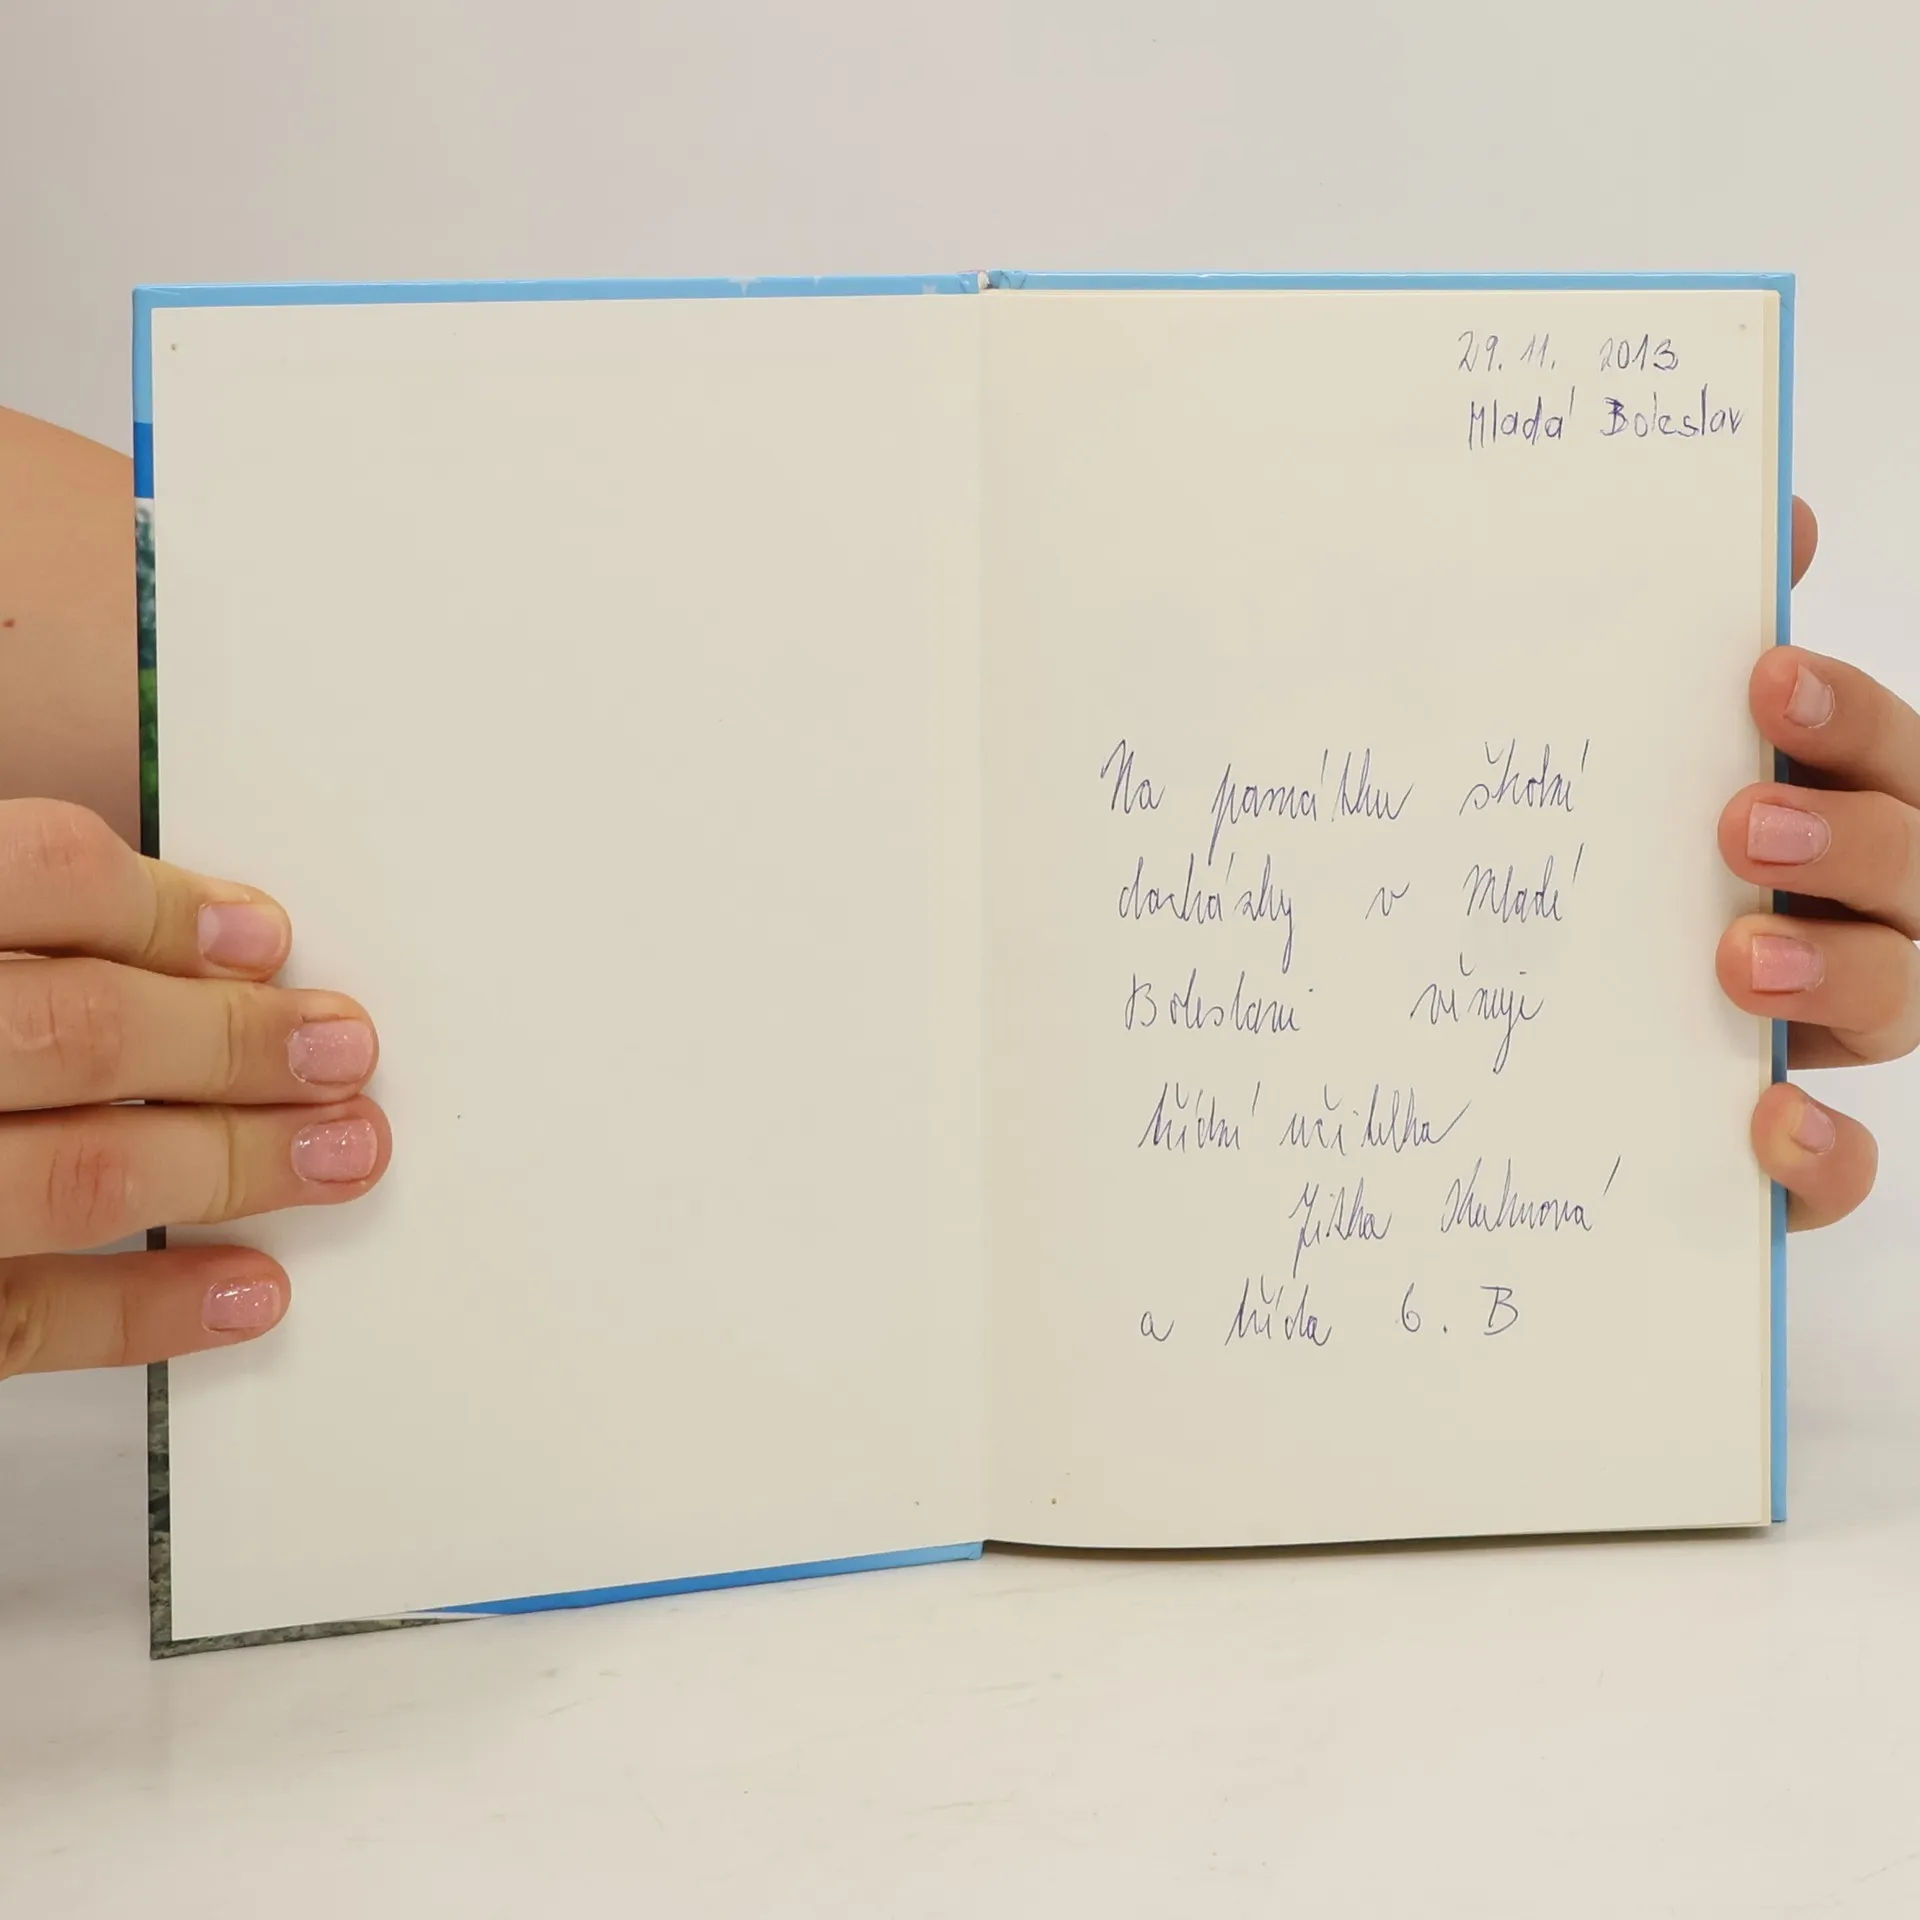 29. 11. 2013
Mladá Boleslav
Na památku školní
docházky v Mladé
Boleslavi věnuje
třídní učitelka
Jitka
a třída 6. B